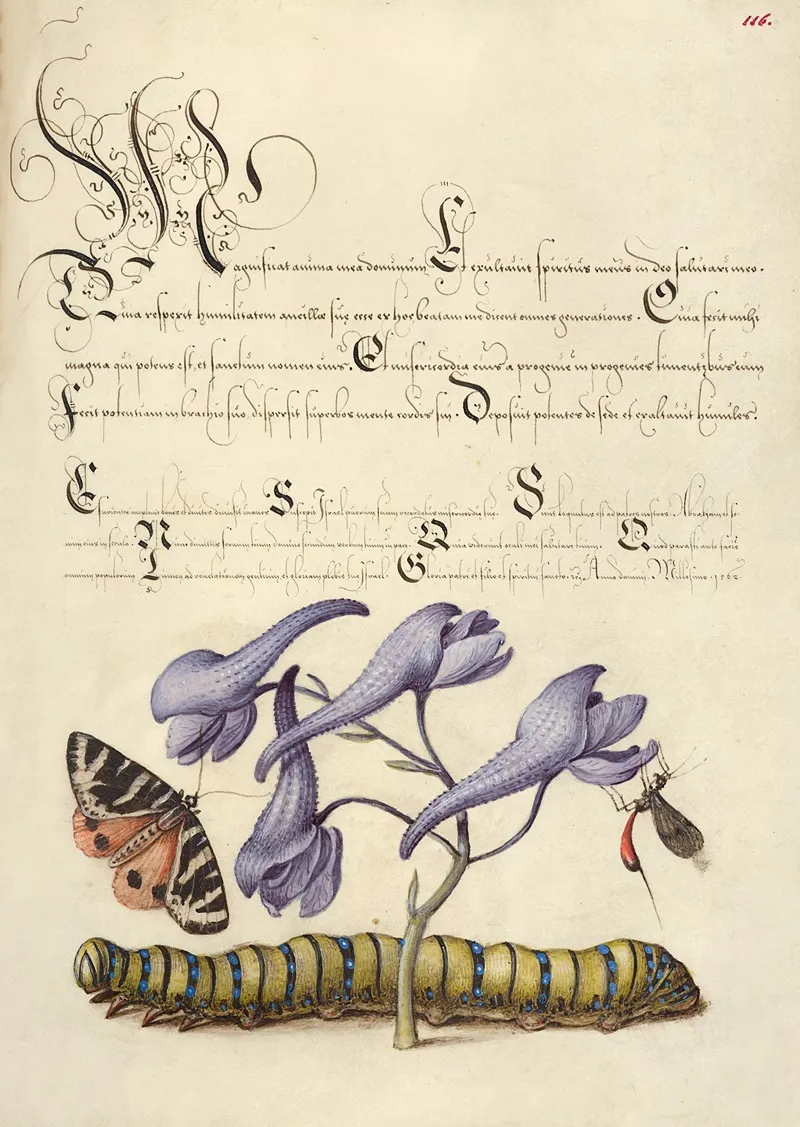 116.
Magnificat anima mea dominum Et exultavit spiritus meus in deo salutari meo.
Quia respexit humilitatem ancillæ suę ecce ex hoc beatam me dicent omnes generationes. Quia fecit mihi
magna qui potens est, et sanctum nomen eius. Et misericordia eius a progenie in progenies timentibus eum
Fecit potentiam in brachio suo, dispersit superbos mente cordis sui. Deposuit potentes de sede et exaltavit humiles.
Esurientes implevit bonis et divites dimisit inanes Suscepit Israel puerum suum recordatus misericordię suę. Sicut loquutus est ad patres nostros, Abraham et se
mini eius in secula. Nunc dimittis servum tuum domine secundum verbum tuum in pace. Quia viderunt oculi mei salutare tuum. Quod parasti ante facie
omnium populorum Lumen ad revelationem gentium, et gloriam plebis tuę Israel. Gloria patri et filio et spiritui sancto. Anno domini. Millesimo. 1562